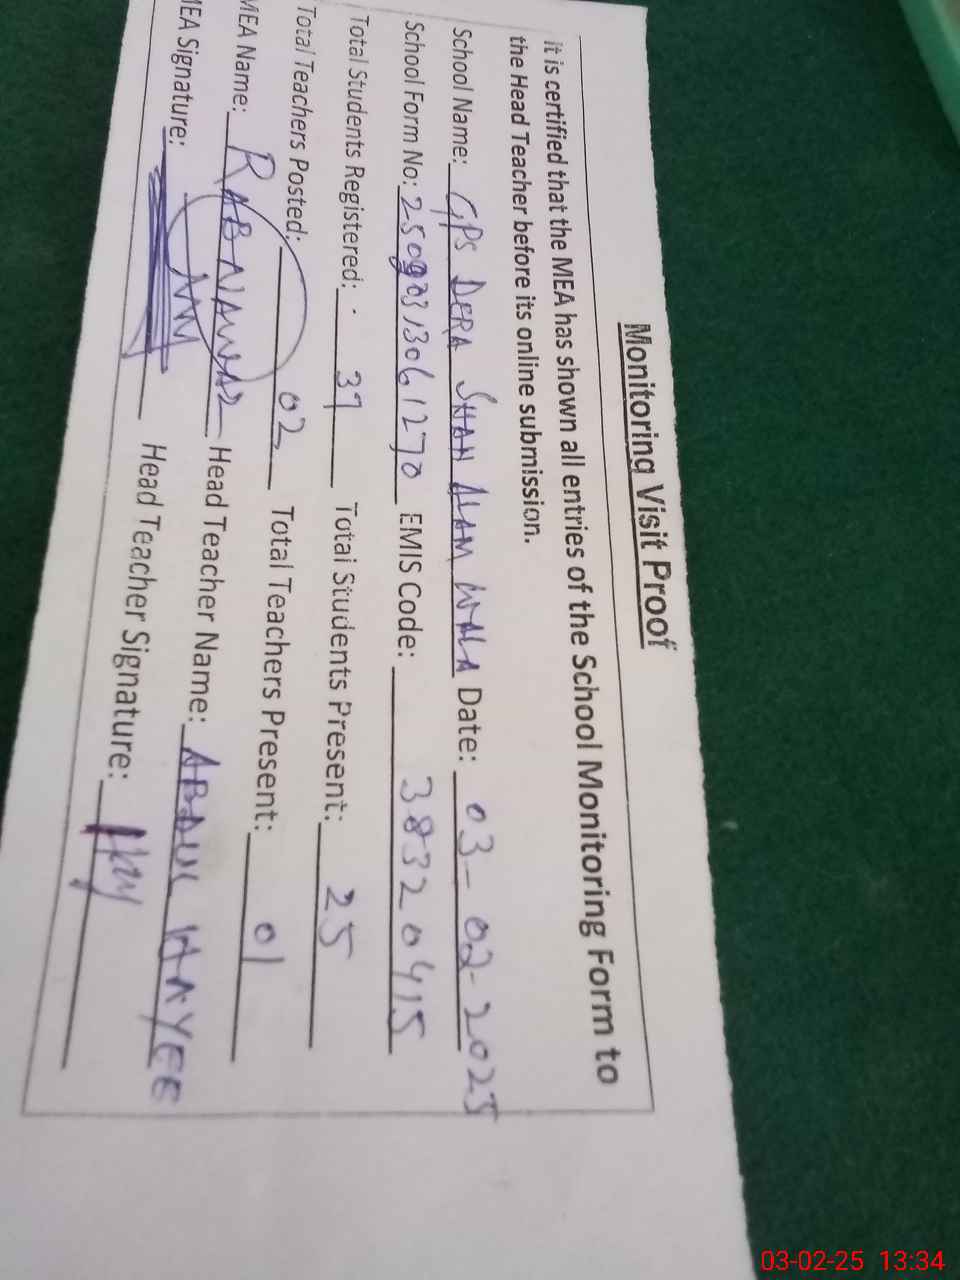 Monitoring Visit Proof
it is certified that the MEA has shown all entries of the School Monitoring Form to
the Head Teacher before its online submission.
School Name: GPS DERA SHAH ALAM WALA Date: 03-02-2025
School Form No: 25090313061270 EMIS Code: 38320415
Total Students Registered: 37 Total Students Present: 25
Total Teachers Posted: 02 Total Teachers Present: 01
MEA Name: RAB NAWAZ Head Teacher Name: ABDUL HAYEE
MEA Signature: Head Teacher Signature:
03-02-25 13:34